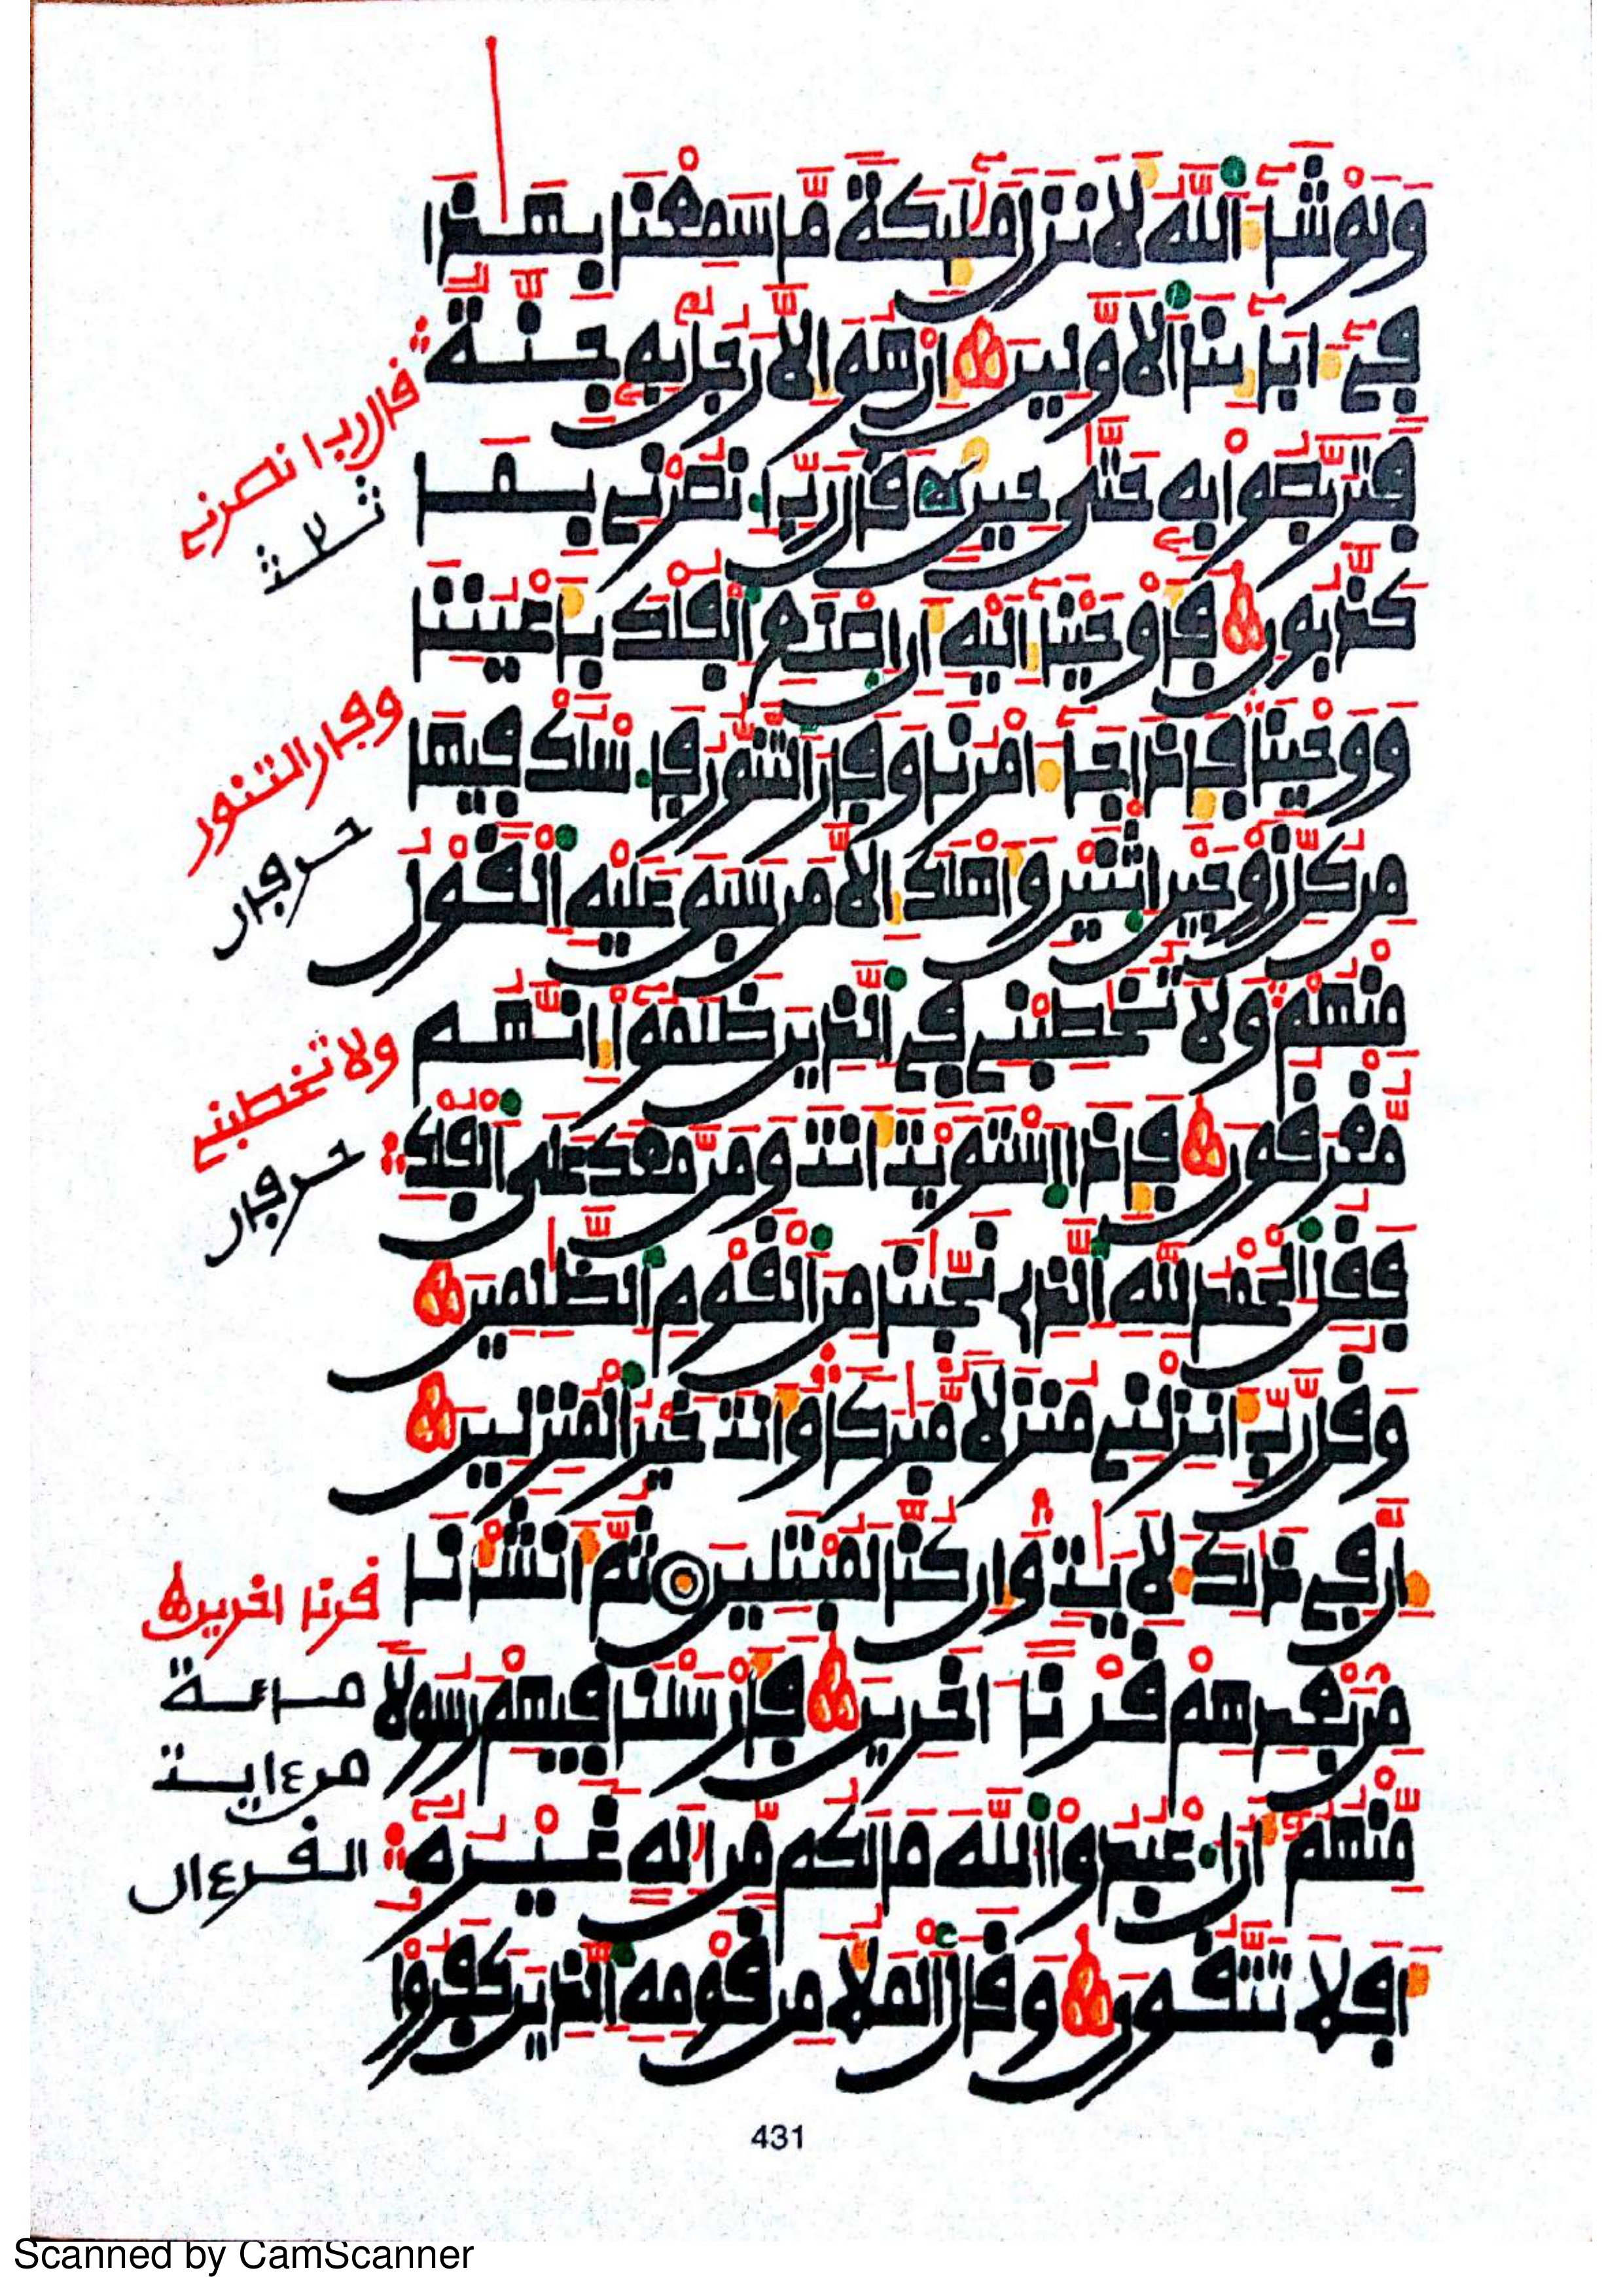 وَلَوْ شَآءَ اَ۬للَّهُ لَأَنزَلَ مَلَٰٓئِكَةً مَّا سَمِعْنَا بِهَٰذَا
فِےٓ ءَابَآئِنَا اَ۬لَاوَّلِينَ إِنْ هُوَ إِلَّا رَجُلُۢ بِهِۦ جِنَّةٌ
فَتَرَبَّصُواْ بِهِۦ حَتَّيٰ حِينٍ قَالَ رَبِّ اِ۟نصُرْنِے بِمَا
كَذَّبُونِ فَأَوْحَيْنَآ إِلَيْهِ أَنِ اِ۪صْنَعِ اِ۬لْفُلْكَ بِأَعْيُنِنَا
وَوَحْيِنَا فَإِذَا جَآءَ امْرُنَا وَفَارَ اَ۬لتَّنُّورُ فَاسْلُكْ فِيهَا
مِن كُلِّ زَوْجَيْنِ اِ۪ثْنَيْنِ وَأَهْلَكَ إِلَّا مَن سَبَقَ عَلَيْهِ اِ۬لْقَوْلُ
مِنْهُمْ وَلَا تُخَٰطِبْنِے فِے اِ۬لذِينَ ظَلَمُوٓاْ إِنَّهُم
مُّغْرَقُونَ فَإِذَا اَ۪سْتَوَيْتَ أَنتَ وَمَن مَّعَكَ عَلَي اَ۬لْفُلْكِ
فَقُلِ اِ۬لْحَمْدُ لِلهِ اِ۬لذِے نَجَّيٰنَا مِنَ اَ۬لْقَوْمِ اِ۬لظَّٰلِمِينَ
وَقُل رَّبِّ أَنزِلْنِے مُنزَلًا مُّبَٰرَكًا وَأَنتَ خَيْرُ اُ۬لْمُنزِلِينَ
إِنَّ فِے ذَٰلِكَ لَأٓيَٰتٍ وَإِن كُنَّا لَمُبْتَلِينَ ثُمَّ أَنشَأْنَا
مِنۢ بَعْدِهِمْ قَرْناً اٰخَرِينَ فَأَرْسَلْنَا فِيهِمْ رَسُولًا
مِّنْهُمُۥٓ أَنُ اُ۟عْبُدُواْ اُ۬للَّهَ مَا لَكُم مِّنِ اِلَٰهٍ غَيْرُهُۥٓ
أَفَلَا تَتَّقُونَ وَقَالَ اَ۬لْمَلَأُ مِن قَوْمِهِ اِ۬لذِينَ كَفَرُواْ
قال رب انصرني
ثلث
وفار التنور
حرفان
ولا تخطبني
حرفان
قرنا اخرين
مائة
من ءاية
القرءان
431
Scanned by CamScanner